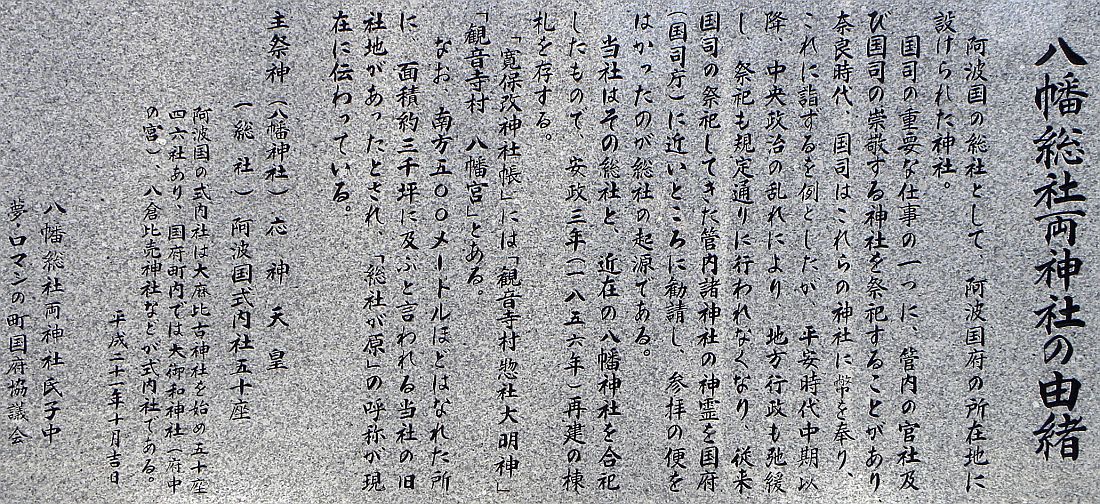 八幡総社両神社の由緒
阿波国の総社として、阿波国府の所在地に
設けられた神社。
国司の重要な仕事の一つに、管内の官社及
び国司の崇敬する神社を祭祀することがあり
奈良時代、国司はこれらの神社に幣を奉り、
これに詣するを例としたが、平安時代中期以
降、中央政治の乱れにより、地方行政も弛緩
し、祭祀も規定通りに行われなくなり、従来
国司の祭祀してきた管内諸神社の神霊を国府
(国司庁)に近いところに勧請し、参拝の便を
はかったのが総社の起源である。
当社はその総社と、近在の八幡神社を合祀
したもので、安政三年(一八五六年)再建の棟
札を存する。
「寛保改神社帳」には「観音寺村惣社大明神」
「観音寺村 八幡宮」とある。
なお 南方五〇〇メートルほどはなれた所
に、面積約三千坪に及ぶと言われる当社の旧
社地があったとされ、「総社が原」の呼称が現
在に伝わっている。
主祭神 (八幡神社) 応神天皇
(総社) 阿波国式内社五十座
阿波国の式内社は大麻比古神社を始め五十座
四六社あり、国府町内では大御和神社(府中
の宮)、八倉比売神社などが式内社である。
平成二十一年十月吉日
八幡総社両神社氏子中
夢・ロマンの町国府協議会